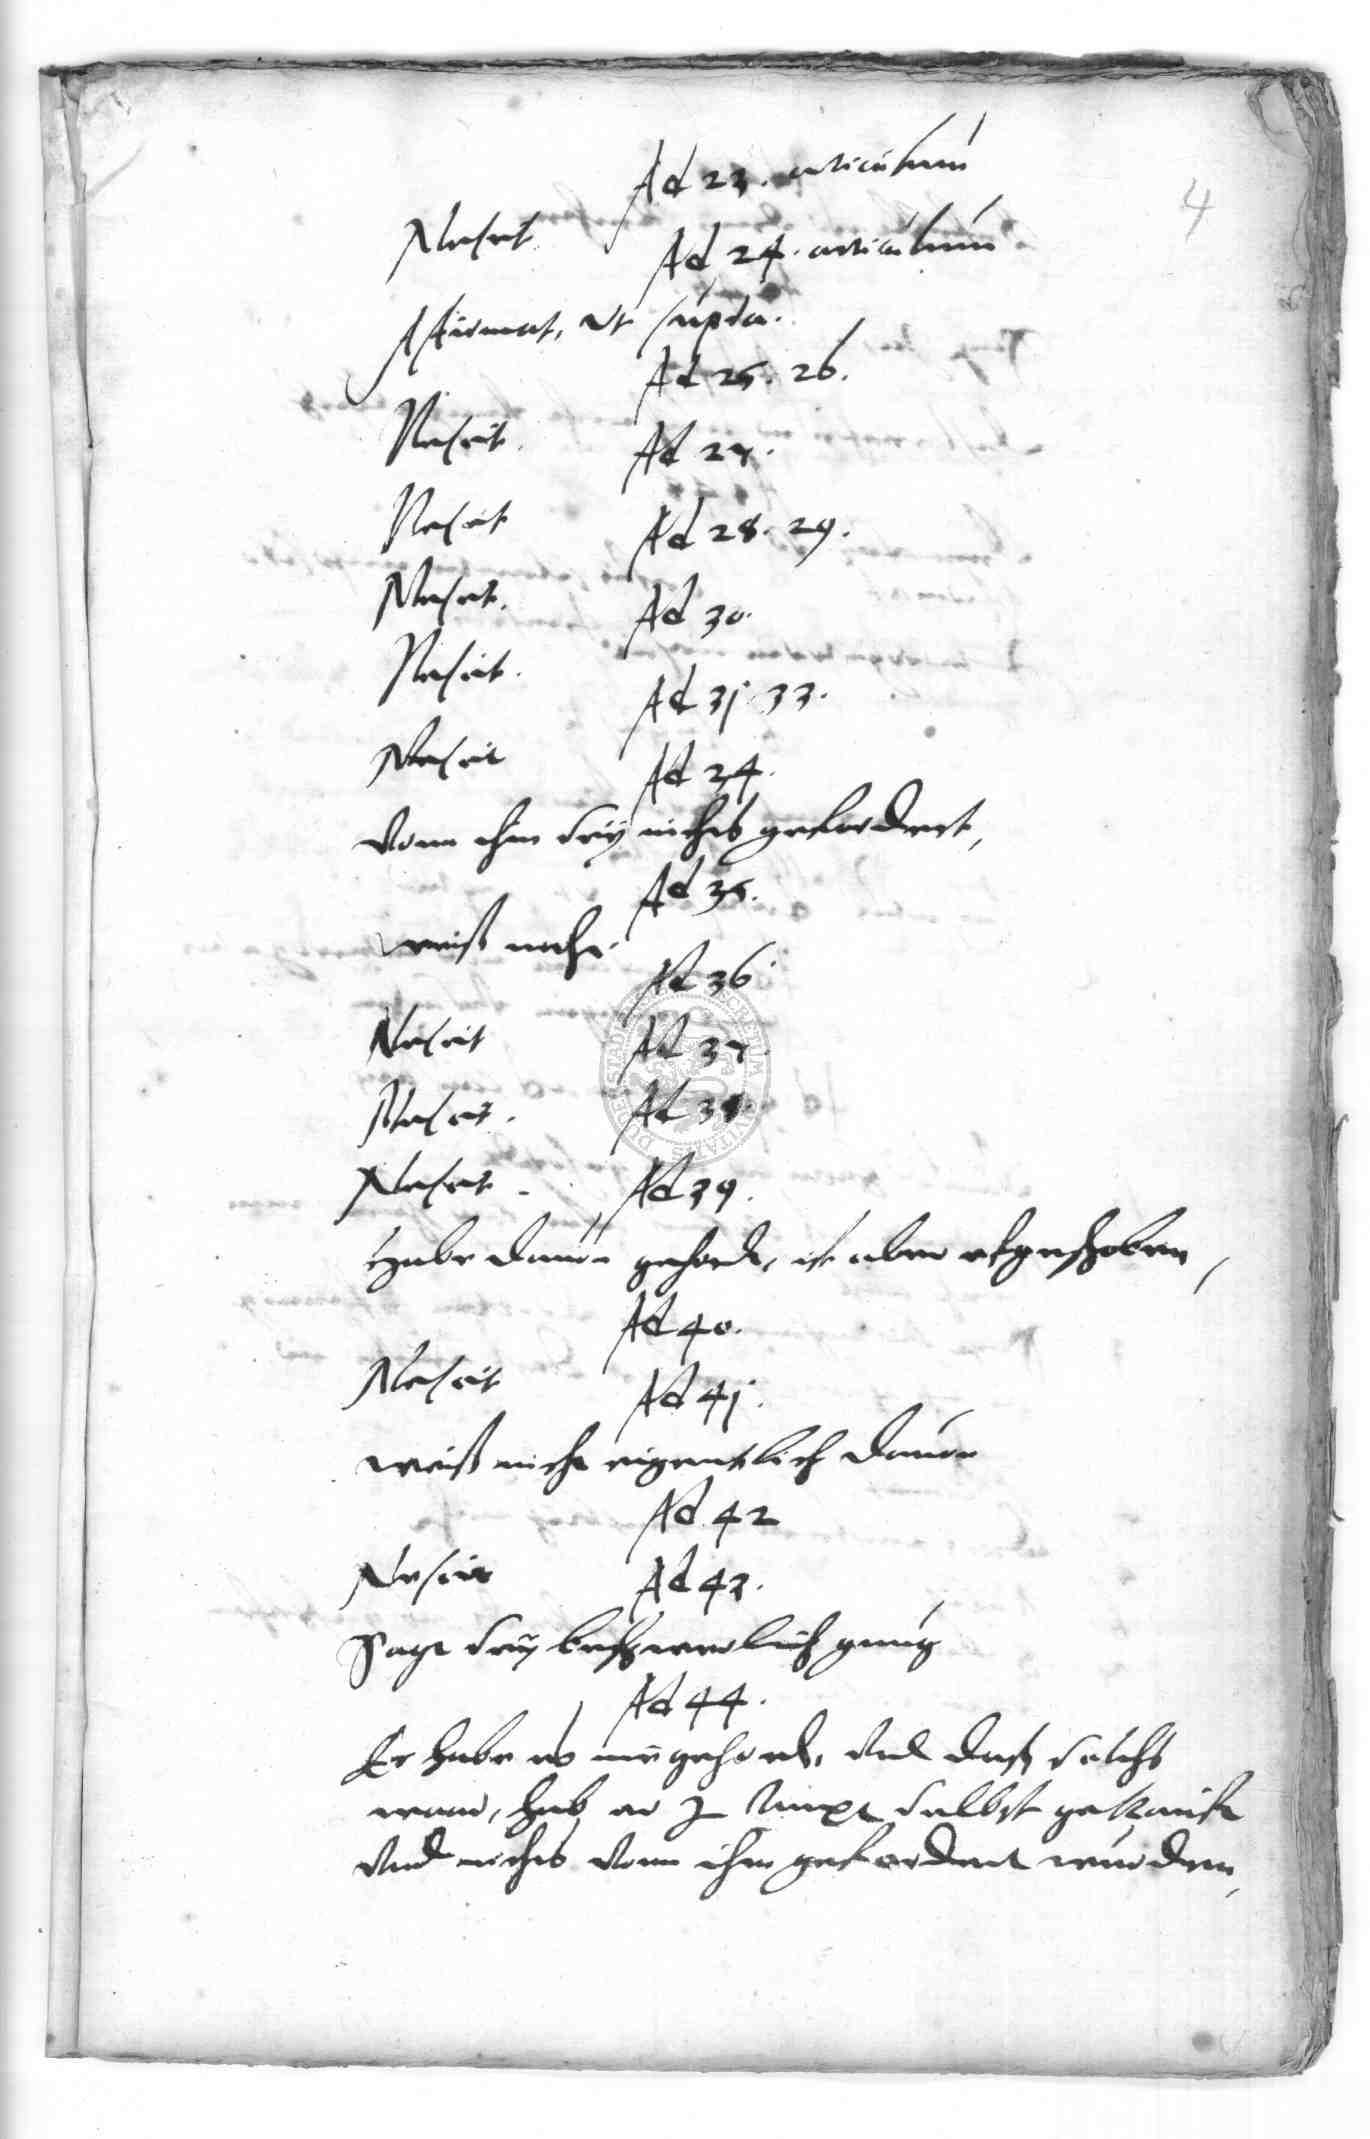 4
Ad 23. articulum
Nescit.
Ad 24. articulum
Affirmat, ut supra.
Ad 25. 26.
Nescit.
Ad 27.
Nescit
Ad 28. 29.
Nescit.
Ad 30.
Nescit.
Ad 31. 33.
Nescit
Ad 34.
Vonn ihm sey nichts gefordert,
Ad 35.
weiß nicht.
Ad 36.
Nescit
Ad 37.
Nescit.
Ad 38.
Nescit.
Ad 39.
Habe davon gehört, ist aber abgeschoben,
Ad 40.
Nescit
Ad 41.
weiß nicht eigentlich davon
Ad 42
Nescit
Ad 43.
Sagt sey beschwerlich gnug
Ad 44.
Er habe es nie gehört, und daß solchs
war, hab er selbst gekauft
Und nichts vonn ihm gefordert wurden,